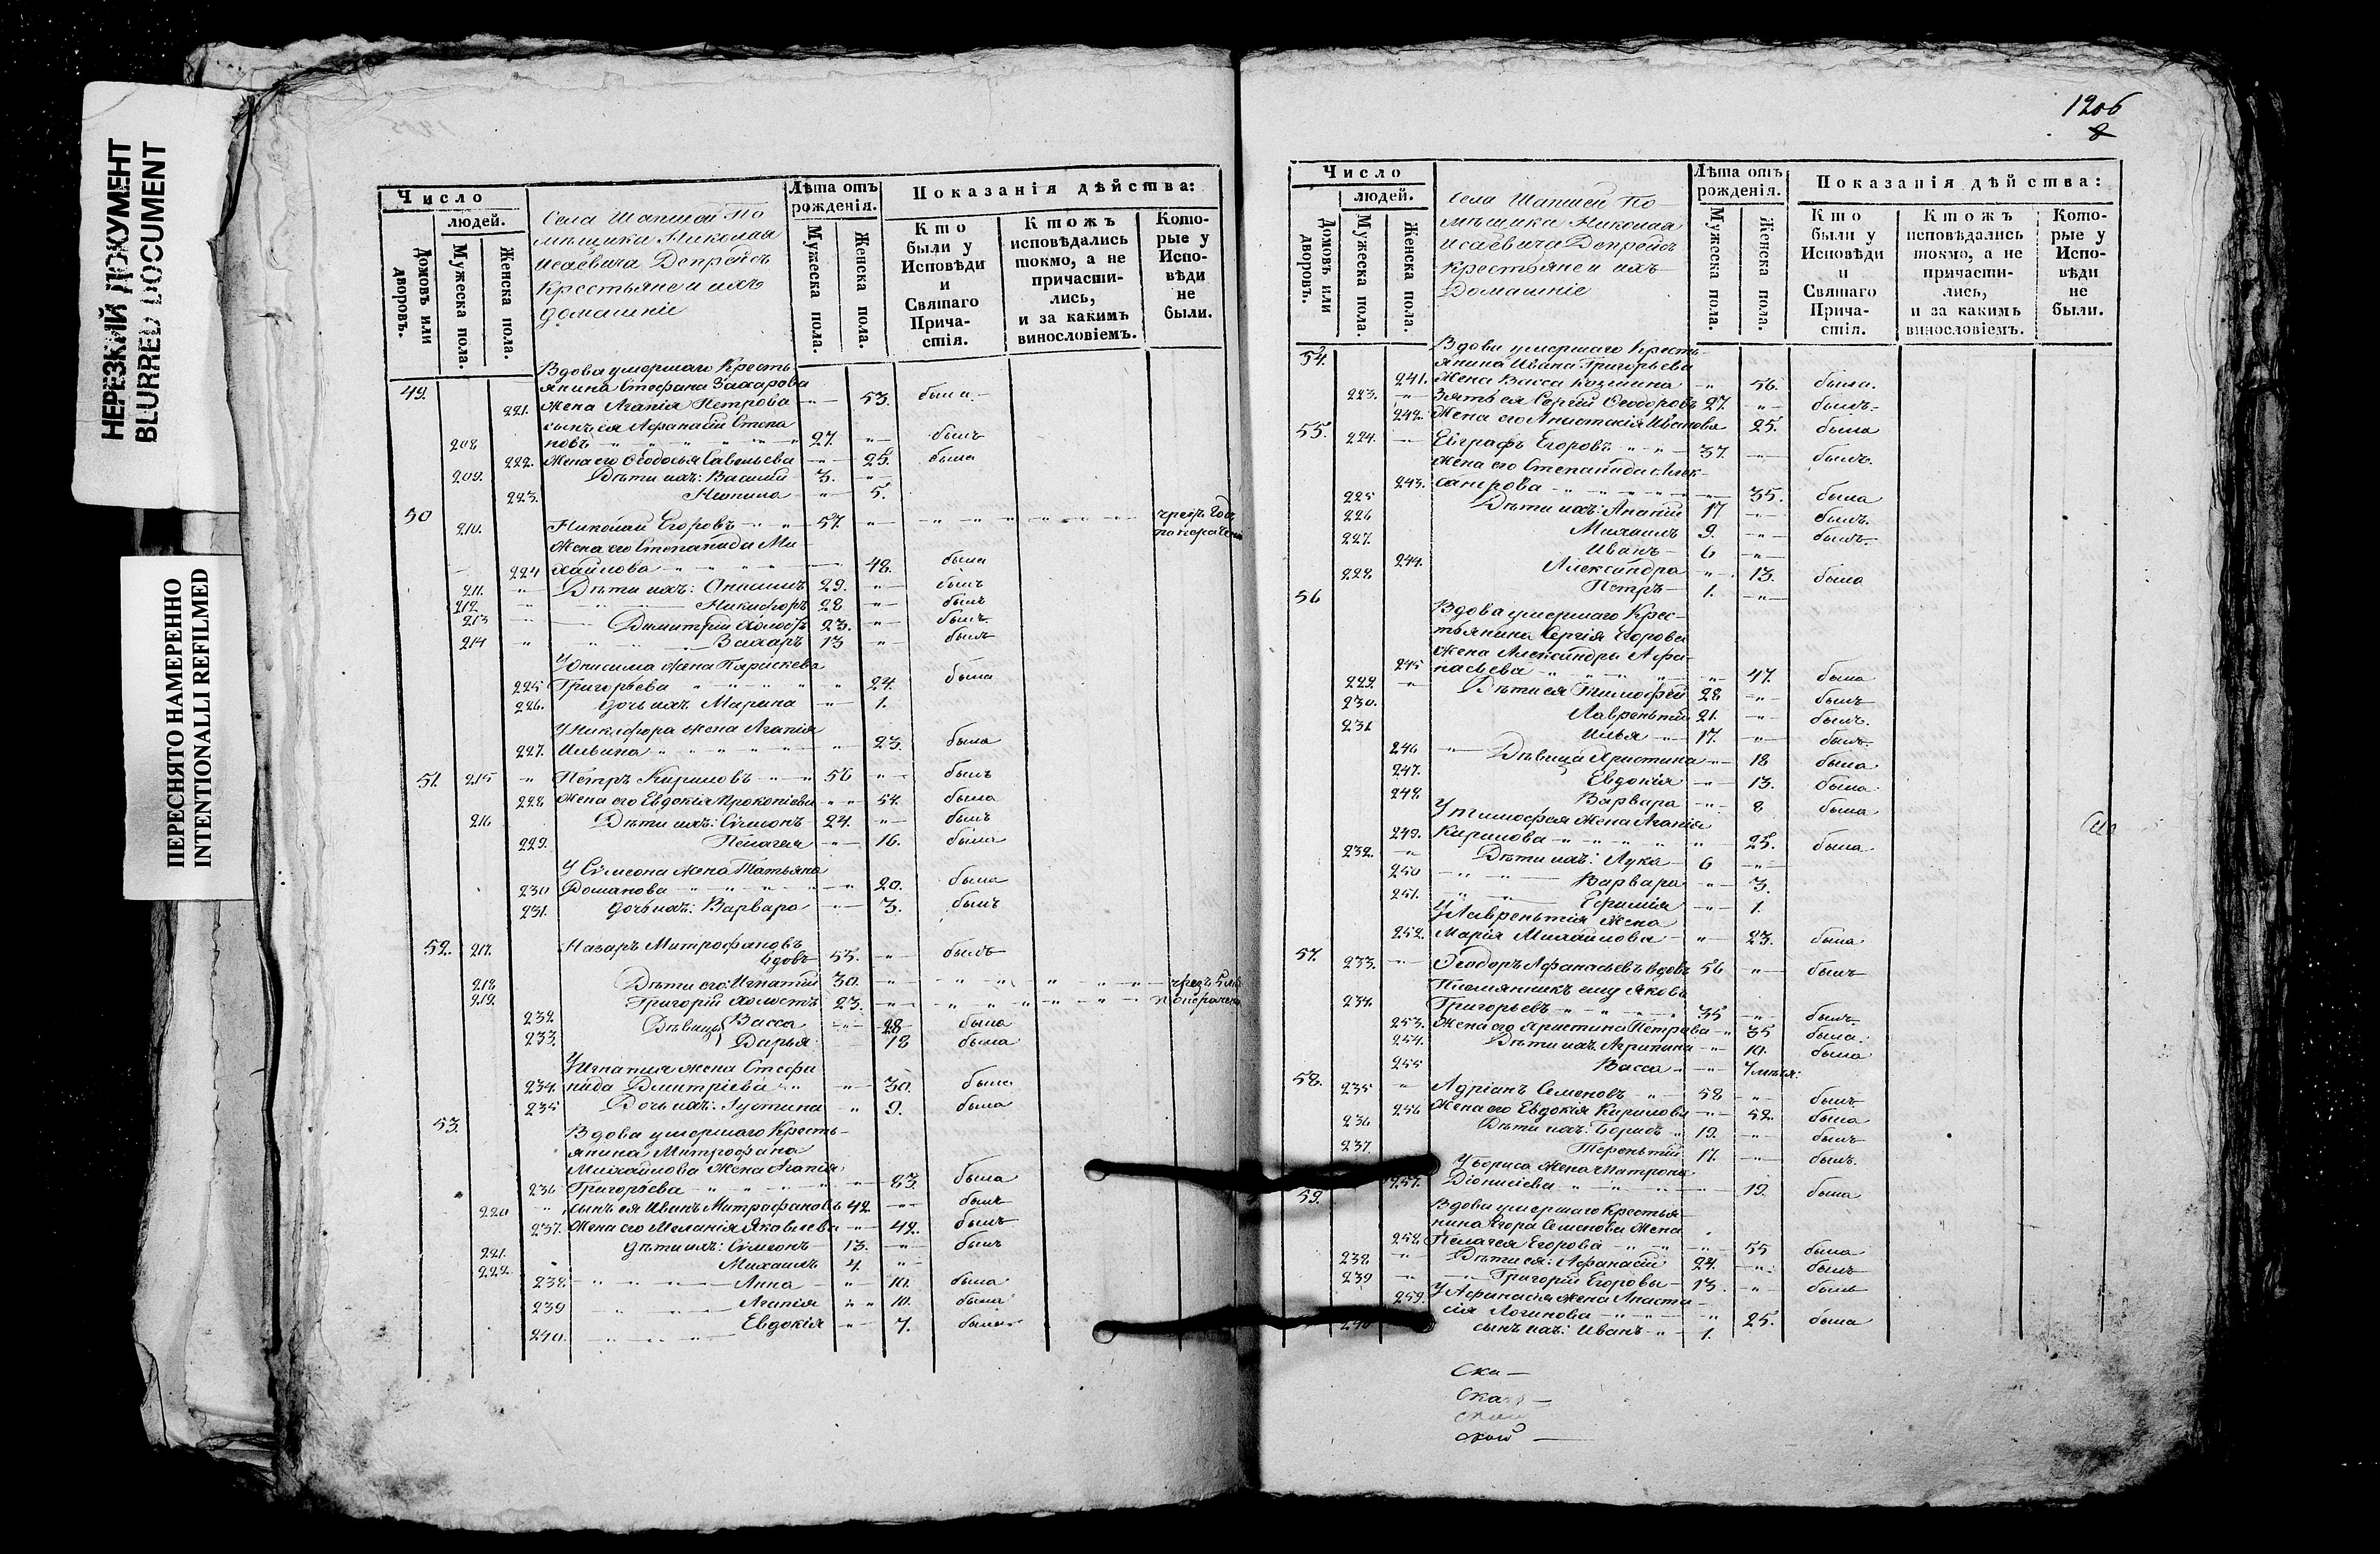 НЕРЕЗКИЙ ДОКУМЕНТ
BLURRED DOCUMENT
ПЕРЕСНЯТО НАМЕРЕННО
INTENTIONALLI REFILMED
Число
людей.
Домовъ или дворовъ.
Мужеска пола.
Женска пола.
Села Шапшей По
мѣщика Николая
Исаевича Депрейсъ
Крестьяне и ихъ
домашніе
Лѣта отъ рожденія.
Мужеска пола.
Женска пола.
Показанія дѣйства:
Кто были у Исповѣди и Святаго Прича- стія.
Ктожъ исповѣдались токмо, а не причасти- лись, и за какимъ винословіемъ.
Кото- рые у Испо- вѣди не были.
49. Вдова умершаго Кресть
янина Стефана Захарова
221. жена Агапія Петрова 53. была
сынъ ея Афанасій Степа
208 новъ 27. былъ
222. жена его Ѳеодосья Савельева 25. была
209. Дѣти ихъ: Василій 3.
223. 5.
50 210. Николай Егоровъ 57. чрезъ
Жена его Степанида Ми
224 хайлова 48. была
211. Дѣти ихъ: 29. былъ
212 Никифоръ 28 былъ
213 Димитрій холостъ 23. былъ
214 Захаръ 13 былъ
У Онисима жена Параскева
225 Григорьева 24. была
226. дочь ихъ Марина 1.
У Никифора жена Агапія
227. Ильина 23. была
51. 215 Петръ Кириловъ 56 былъ
228 жена его Евдокія Прокопіева 54. была
216 Дѣти ихъ: Сѵмеонъ 24. былъ
229. Пелагея 16. была
У Сѵмеона жена Татьяна
230 Романова 20. была
231. дочь ихъ: Варвара 3. былъ
52. 217. Назаръ Митрофановъ
вдовъ 55. былъ
218 Дѣти его: Игнатій 30. чрезъ
219. Григорій холостъ 23.
232 Дѣвицы Васса 28 была
233. Дарья 18 была
У Игнатія жена Стефа
234. нида Дмитріева 30. была
235 Дочь ихъ: Іустина 9. была
53. Вдова умершаго Кресть-
янина Митрофана
Михайлова жена Агапія
236 Григорьева 83. была
220 сынъ ея Иванъ Митрофановъ 42 былъ
237. Жена его Меланія Яковлева 42. былъ
221. дѣти ихъ: Сѵмеонъ 13. былъ
222 Михаилъ 4.
238. Анна 10. была
239 Агапія 10. была
240. Евдокія 7. была
1206
8
Число
людей.
Домовъ или дворовъ.
Мужеска пола.
Женска пола.
Села Шапшей По-
мѣщика Николая
Исаевича Депрейсъ
Крестьяне и ихъ
Домашніе
Лѣта отъ рожденія.
Мужеска пола.
Женска пола.
Показанія дѣйства:
Кто были у Исповѣди и Святаго Прича- стія.
Ктожъ исповѣдались токмо, а не причасти- лись, и за какимъ винословіемъ.
Кото- рые у Испо- вѣди не были.
54. Вдова умершаго Кресть-
янина Ивана Григорьева
241. жена Васса Козмина 56. была.
223. Зять ея Сергій Ѳеодоровъ 27. былъ
242. Жена его Анастасія Иванова 25. была
55. 224. Евграфъ Егоровъ 37. былъ
жена его Степанида Алек-
243. сандрова 35. была
225 Дѣти ихъ: 17 былъ.
226 Михаилъ 9. былъ
227. Иванъ 6
244. Александра 13. была
228 Петръ 1.
56 Вдова умершаго Крес-
тьянина Сергія Егорова
жена Александра Афа-
245 насьева 47. была
229. Дѣти ея Тимофей 28 былъ
230. Лаврентій 21. былъ.
231 Илья 17. былъ
246 Дѣвица Христина 18 была
247. Евдокія 13. была
248 Варвара 8 была
У Тимофея жена Агапія
249. Кирилова 25. была
232. Дѣти ихъ: Лука 6
250 Варвара 3.
251. Ефимія 1.
У Лаврентія жена
252. Марія Михайлова 23. была
57. 233. Ѳеодоръ Афанасьевъ вдовъ 56 былъ
Племянникъ ему Яковъ
234. Григорьевъ 35 былъ
253. Жена его Христина Петрова 35 была.
254. Дѣти ихъ Агрипина 10. была
255 Васса
58. 235 Адріанъ Семеновъ 58 былъ
256 Жена его Евдокія Кирилова 52. была
236 Дѣти ихъ: Борисъ 19. былъ
237. Терентій 17. былъ.
У Бориса жена Матрона
257. Діонисіева 19. была
59. Вдова умершаго Крестья-
нина Егора Семенова жена
258 Пелагея Егорова 55 была
238. Дѣти ея: Афанасій 24. былъ
239 Григорій Егоровы 13. былъ
259. У Афанасія жена Анаста-
сія Логинова 25. была
240 сынъ ихъ: Иванъ 1.